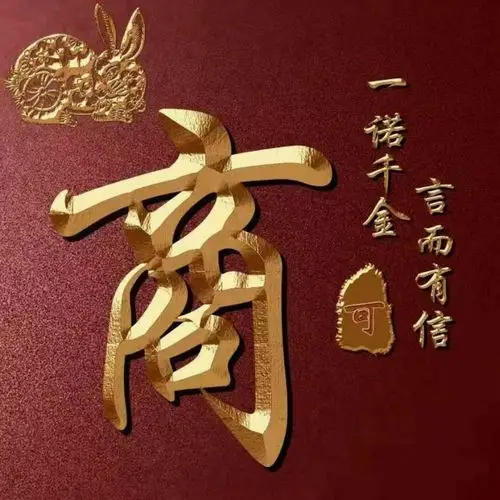 商
一诺千金
言而有信
可